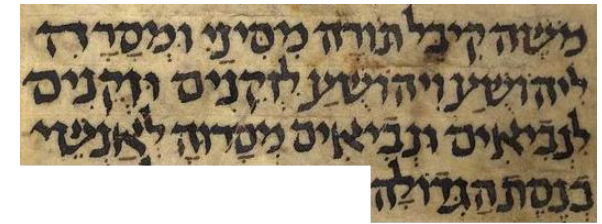 משה קיבל תורה מסיני ומסרה
ליהושע ויהושע לזקנים וזקנים
לנביאים ונביאים מסרוה לאנשי
כנסת הגדולה